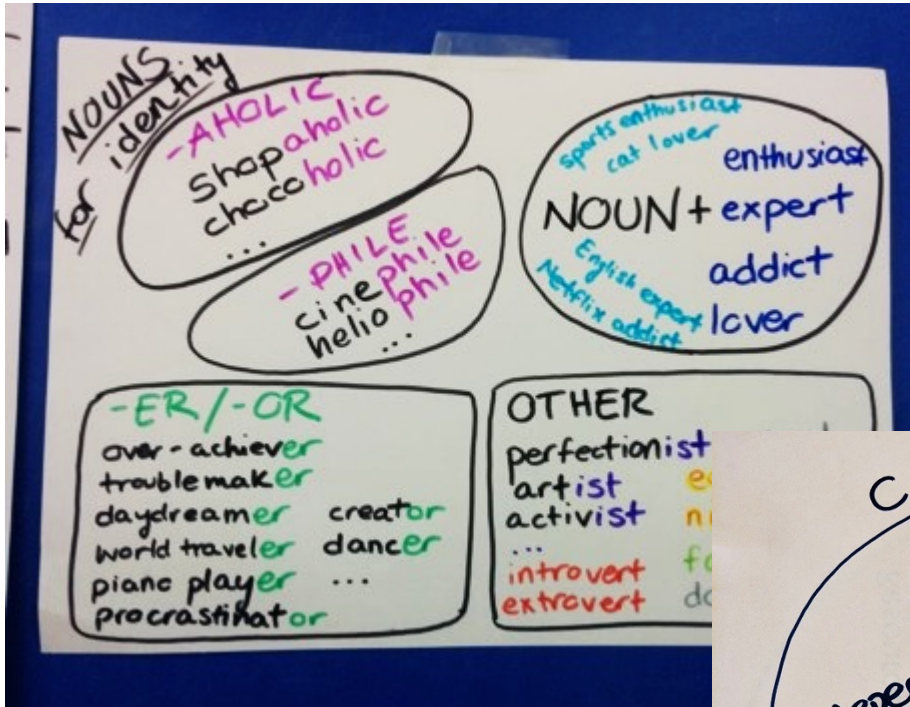 NOUNS
for identity
-AHOLIC
shopaholic
chocoholic
...
-PHILE
cinephile
heliophile
...
sports enthusiast
cat lover
enthusiast
NOUN + expert
addict
lover
English expert
Netflix addict
-ER/-OR
over-achiever
troublemaker
daydreamer creator
world traveler dancer
piano player ...
procrastinator
OTHER
perfectionist
artist
activist
...
introvert
extrovert
C